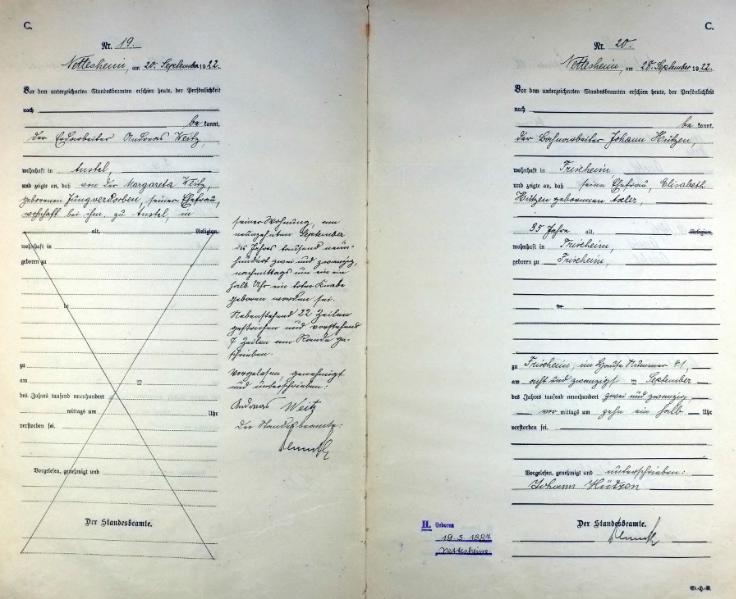 C.
Nr. 19.
Nettesheim, am 20. September 1922.
Vor dem unterzeichneten Standesbeamten erschien heute, der Persönlichkeit
nach
be kannt,
der Erdarbeiter Andreas Weitz,
wohnhaft in Anstel,
und zeigte an, daß von der Margareta Weitz,
geborenen Jungverdorben, seiner Ehefrau,
wohnhaft bei ihm, zu Anstel, in
alt, Religion,
wohnhaft in
geboren zu
zu
am
des Jahres tausend neunhundert
mittags um Uhr
verstorben sei.
Vorgelesen, genehmigt und
Der Standesbeamte.
seiner Wohnung, am
neunzehnten September
des Jahres tausend neun-
hundert zwei und zwanzig,
nachmittags um ein ein
halb Uhr ein toter Knabe
geboren worden sei.
Nebenstehend 22 Zeilen
gestrichen und vorstehend
7 Zeilen am Rande ge-
schrieben.
Vorgelesen, genehmigt
und unterschrieben:
Andreas Weitz
Der Standesbeamte:
C.
Nr. 20.
Nettesheim, am 28. September 1922.
Vor dem unterzeichneten Standesbeamten erschien heute, der Persönlichkeit
nach
be kannt,
der Bahnarbeiter Johann Hützen,
wohnhaft in Frixheim
und zeigte an, daß seine Ehefrau, Elisabeth
Hützen geborenen
35 Jahre alt, Religion,
wohnhaft in Frixheim
geboren zu Frixheim,
zu Frixheim, im Hause Nummer 41,
am acht und zwanzigst en September
des Jahres tausend neunhundert zwei und zwanzig
vor mittags um zehn ein halb Uhr
verstorben sei.
Vorgelesen, genehmigt und unterschrieben:
Johann Hützen
Der Standesbeamte.
II. Geboren
Nettesheim